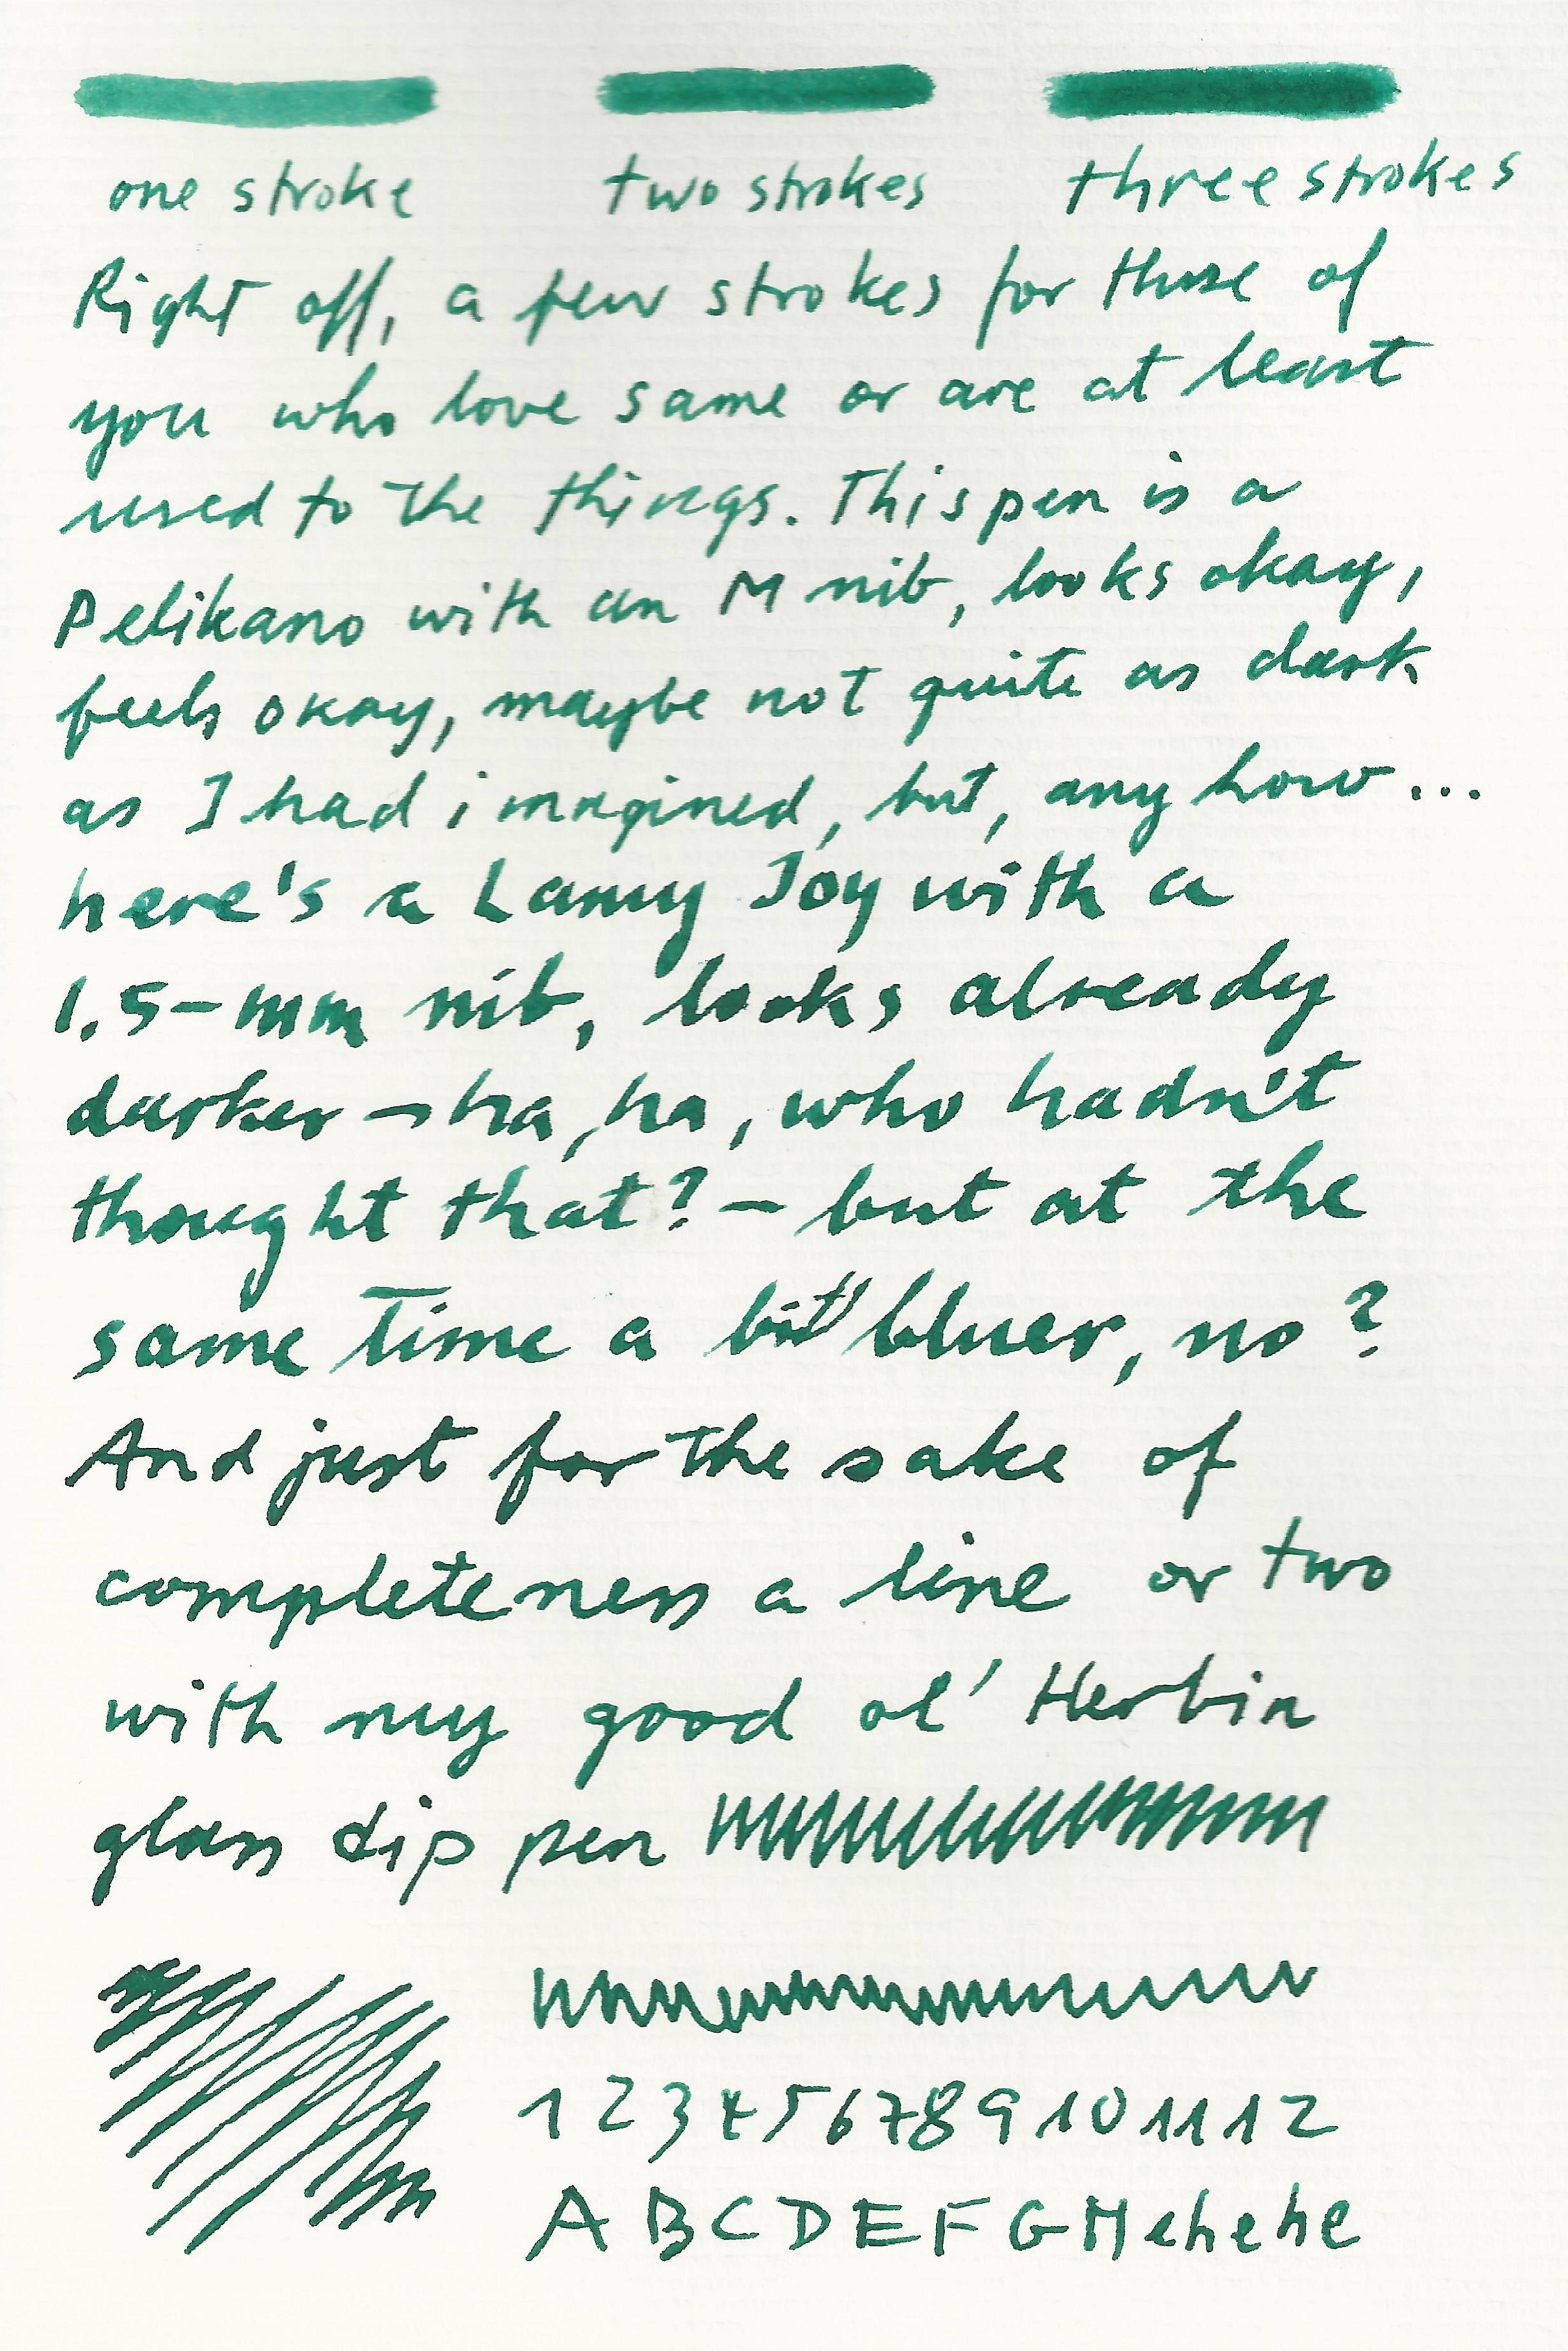 one stroke two strokes three strokes
Right off, a few strokes for those of
you who love same or are at least
used to the things. This pen is a
Pelikano with an M nib, looks okay,
feels okay, maybe not quite as dark
as I had imagined, but, anyhow...
here's a Lamy Joy with a
1.5-mm nib, looks already
darker – ha, ha, who hadn't
thought that? – but at the
same time a bit bluer, no?
And just for the sake of
completeness a line or two
with my good ol' Herbin
glass dip pen
1 2 3 4 5 6 7 8 9 10 11 12
A B C D E F G H e h e h e